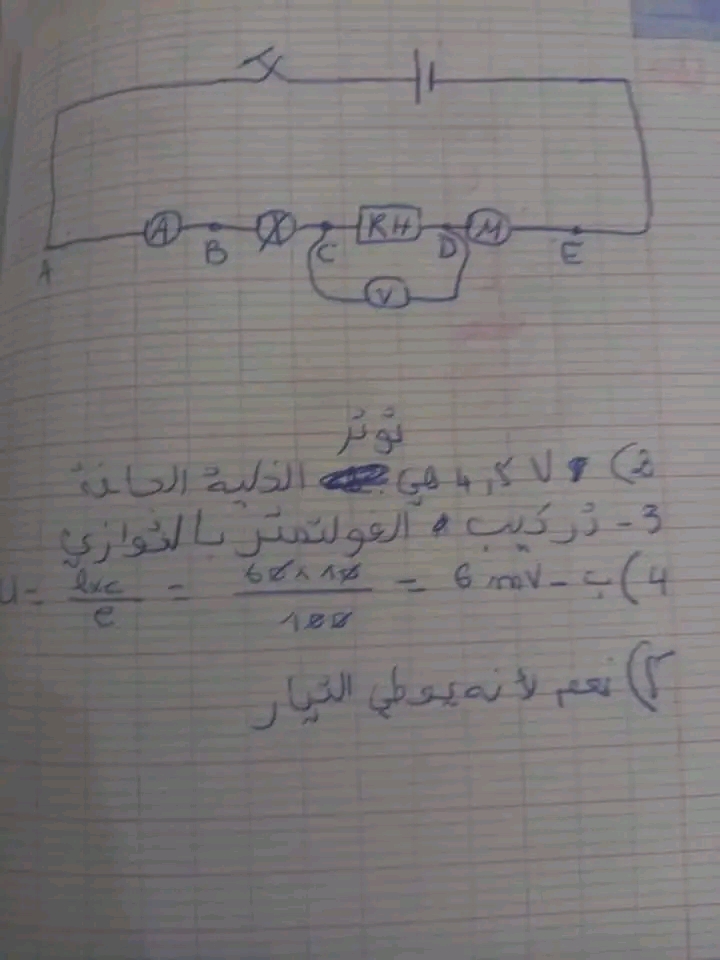 A B C D E
A X RH M
V
توتر
2) 4,5 V هي الخلية الجافة
3- تركيب الفولتمتر بالتوازي
4) ب- U = lxc / e = 60 x 10 / 100 = 6 mV
5) نعم لأنه يعطي التيار